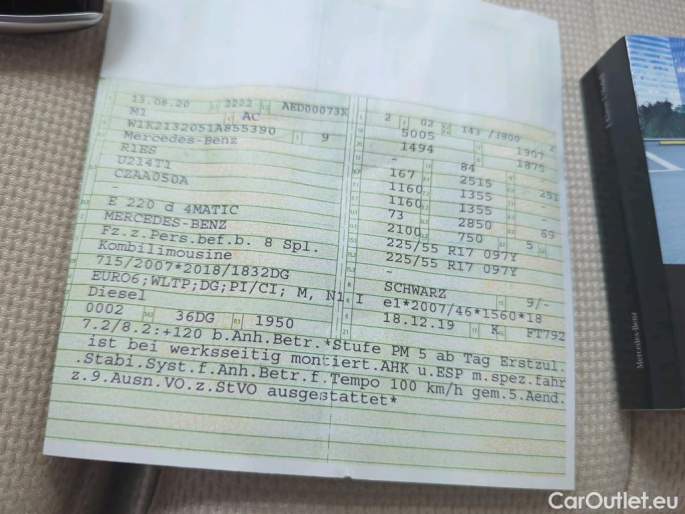 13.08.20 2222 AED00073X
M1 AC
W1K2132051A855390 9
Mercedes-Benz
R1ES
U214T1
CZAA050A
-
E 220 d 4MATIC
MERCEDES-BENZ
Fz.z.Pers.bef.b. 8 Spl.
Kombilimousine
715/2007*2018/1832DG
EURO6;WLTP;DG;PI/CI; M, N1 I
Diesel
0002 36DG 1950
2 02 147 /3800
5005 1907
1494 1875
- 84
167 2515 251
1160 1355
1160 1355
73 2850 69
2100 750 5
225/55 R17 097Y
225/55 R17 097Y
-
SCHWARZ 9/-
e1*2007/46*1560*18
18.12.19 K FT792
7.2/8.2:+120 b.Anh.Betr.*Stufe PM 5 ab Tag Erstzul.
ist bei werksseitig montiert.AHK u.ESP m.spez.fahr
.Stabi.Syst.f.Anh.Betr.f.Tempo 100 km/h gem.5.Aend.
z.9.Ausn.VO.z.StVO ausgestattet*
Mercedes-Benz
CarOutlet.eu